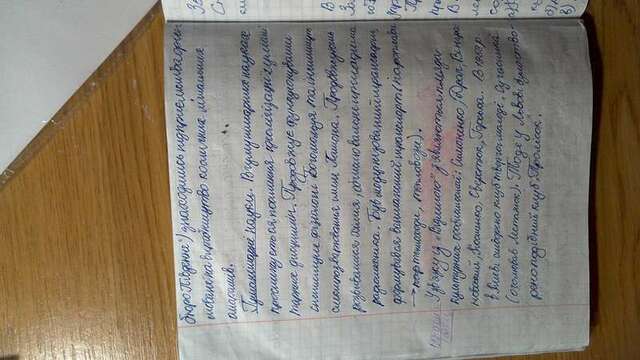 бюро Південне") знаходились підприємства орієн-
товані на виробництво космічних літальних
апаратів.
Гуманітарні науки. В гумунітарних науках
прослідкується посилення ідеологізації гумані
тарних дисциплін. Продовжує функціонування
інституту фізіології Богомольця та інститут
електрозварювання імені Патона. Продовжують
розвиватися хімія, обчислювальне
радіотехніка. Був модернізований транспорт,
формувався вантажний транспорт (паротяги
→ теплоходи, тепловози).
У зв'язку із "Відлигою" з'являються плеяда
культурних особистостей: Симоненко, Драч, Вінгра-
новський, Костенко, Сверстюк, Горська. В 1962 р.
в Києві створено клуб творчої молоді, Сучасник
(очолював Лесь Танюк). Тоді у Львові було ство-
рено подібний клуб Пролісок.